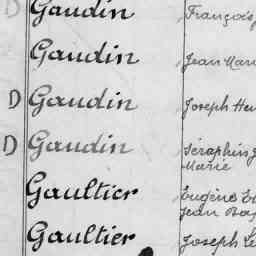 D Gaudin François
Gaudin Jean Mari
D Gaudin Joseph Hen
D Gaudin Séraphin J
Marie
Gaultier Eugène
Jean Bap
Gaultier Joseph Le